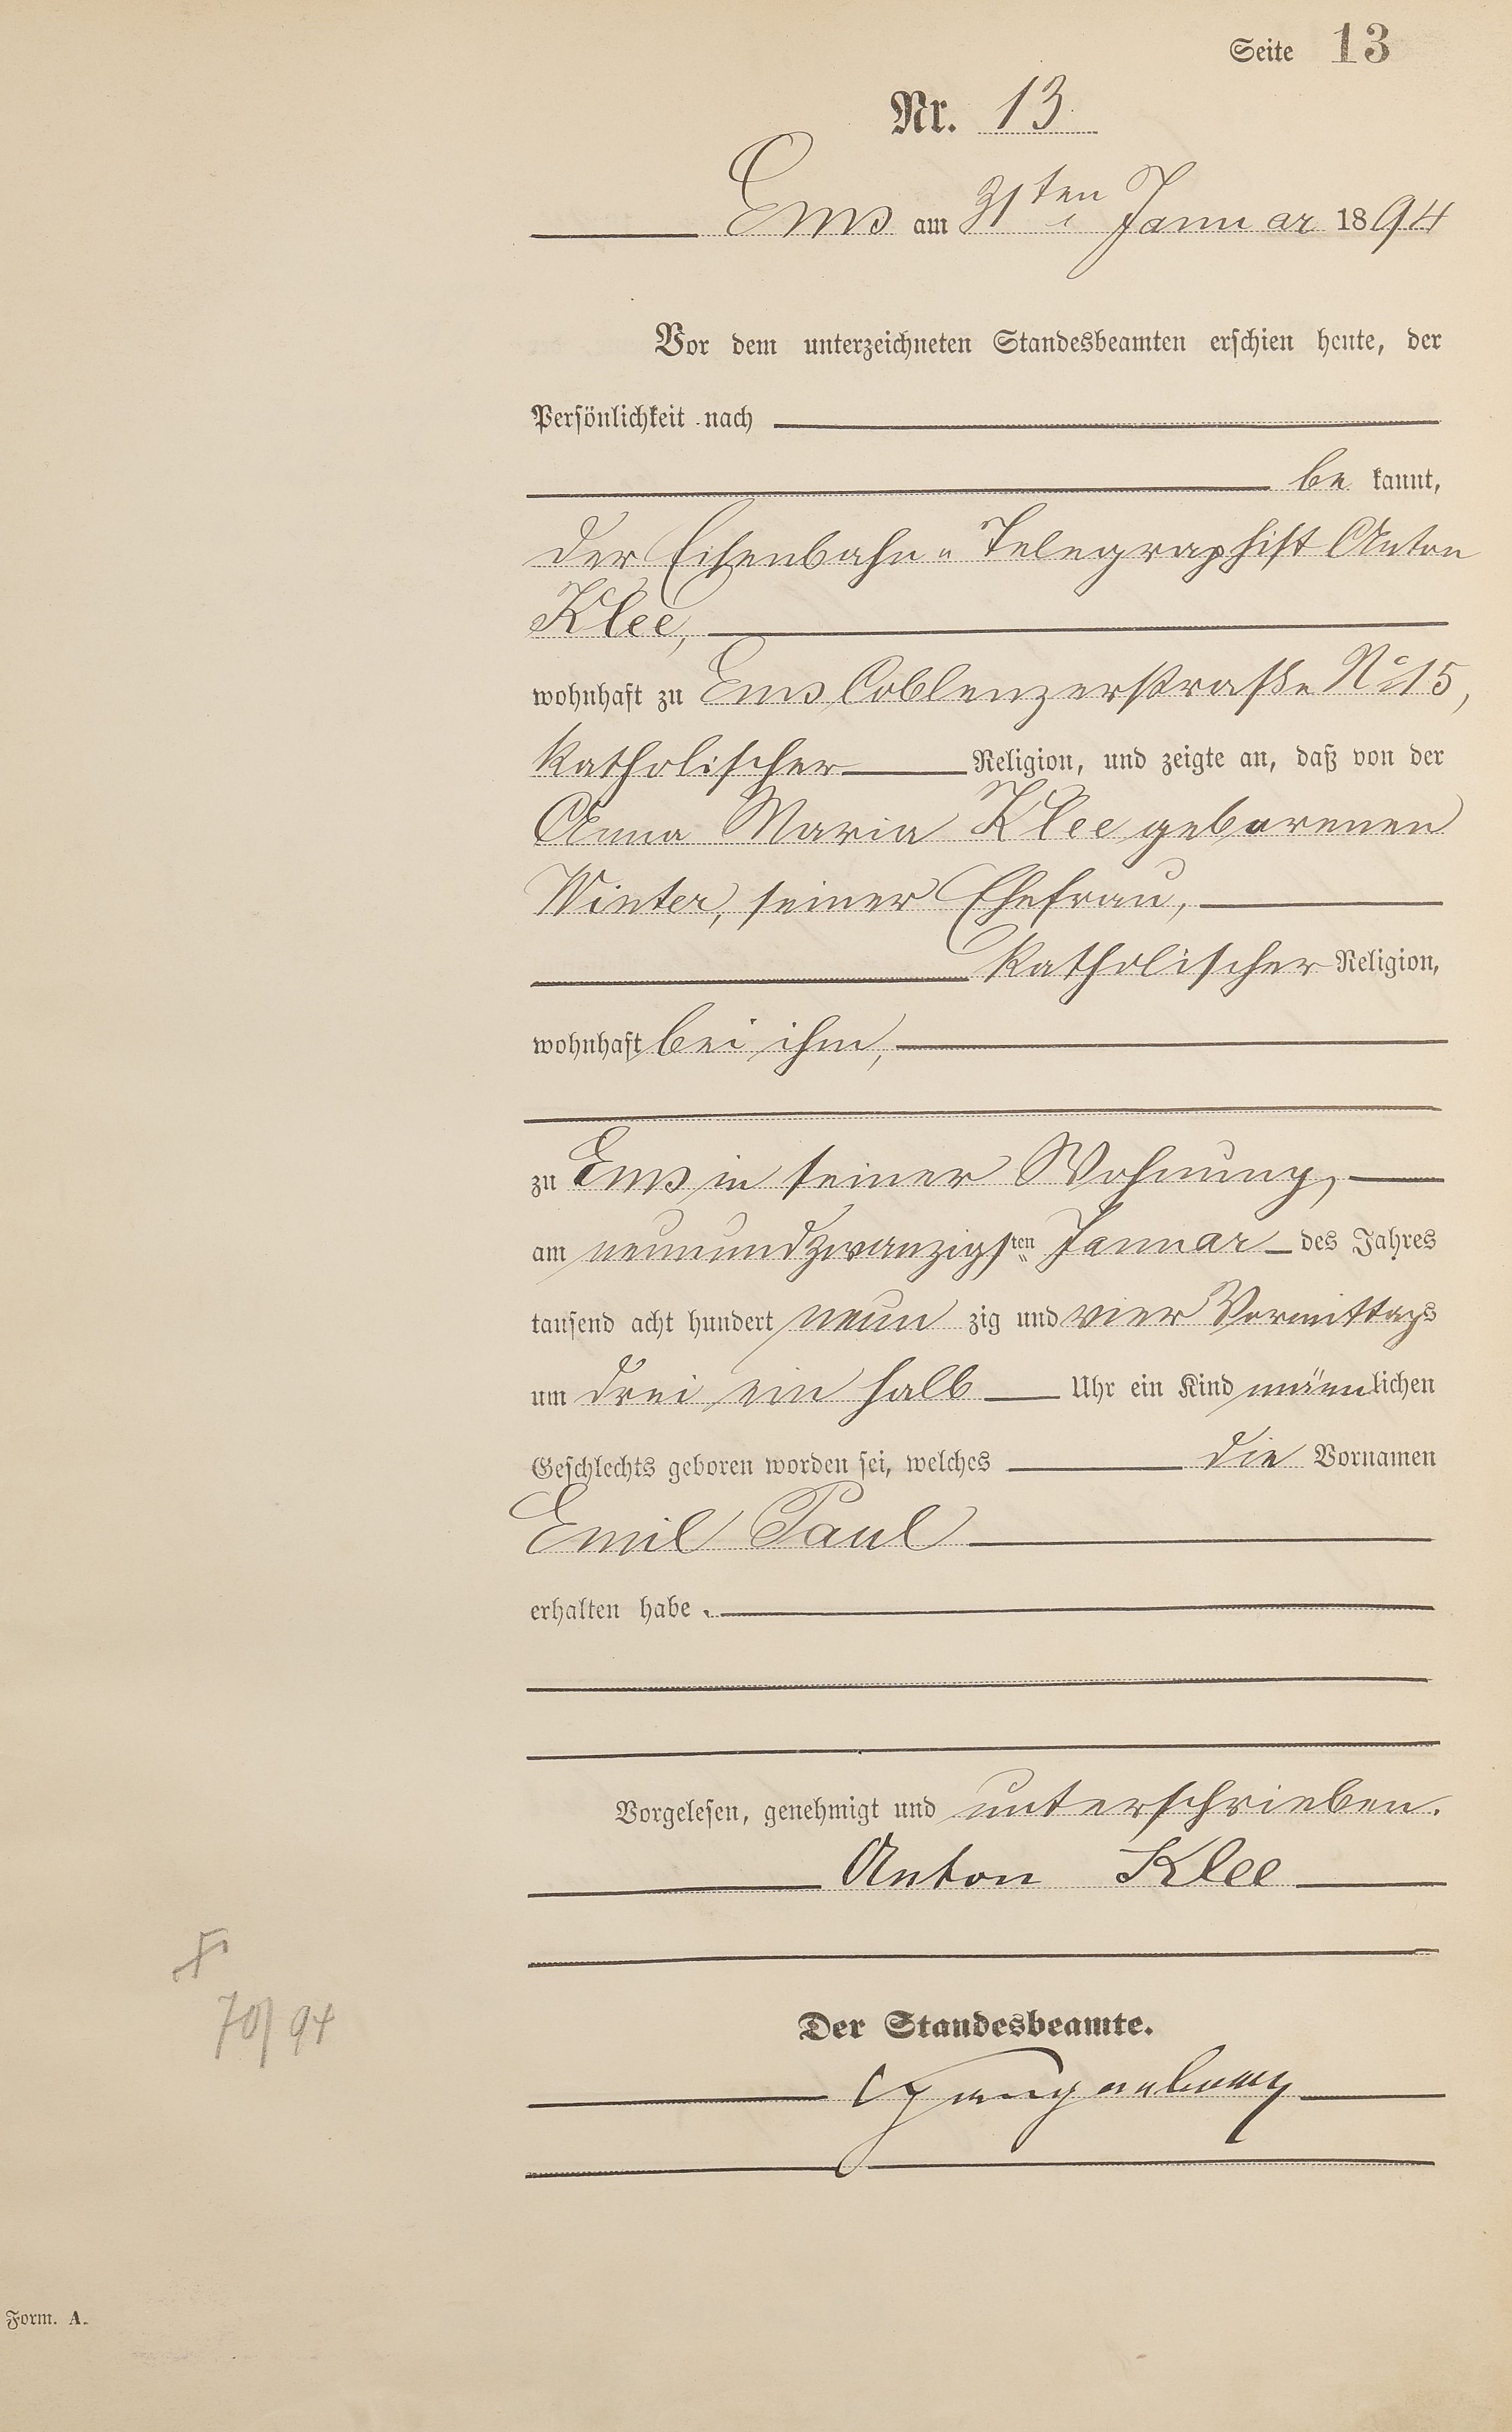 Seite 13
Nr. 13
Ems am 31ten Januar 1894
Vor dem unterzeichneten Standesbeamten erschien heute, der
Persönlichkeit nach
be kannt,
der Eisenbahn- Telegraphist Anton
Klee,
wohnhaft zu Ems Coblenzerstraße No 15,
katholischer Religion, und zeigte an, daß von der
Anna Maria Klee geborenen
Winter, seiner Ehefrau,
katholischer Religion,
wohnhaft bei ihm,
zu Ems in seiner Wohnung,
am neunundzwanzigsten Januar des Jahres
tausend acht hundert neun zig und vier Vormittags
um drei ein halb Uhr ein Kind männlichen
Geschlechts geboren worden sei, welches die Vornamen
Emil Paul
erhalten habe.
Vorgelesen, genehmigt und unterschrieben.
Anton Klee
70/94
Der Standesbeamte.
Form. A.